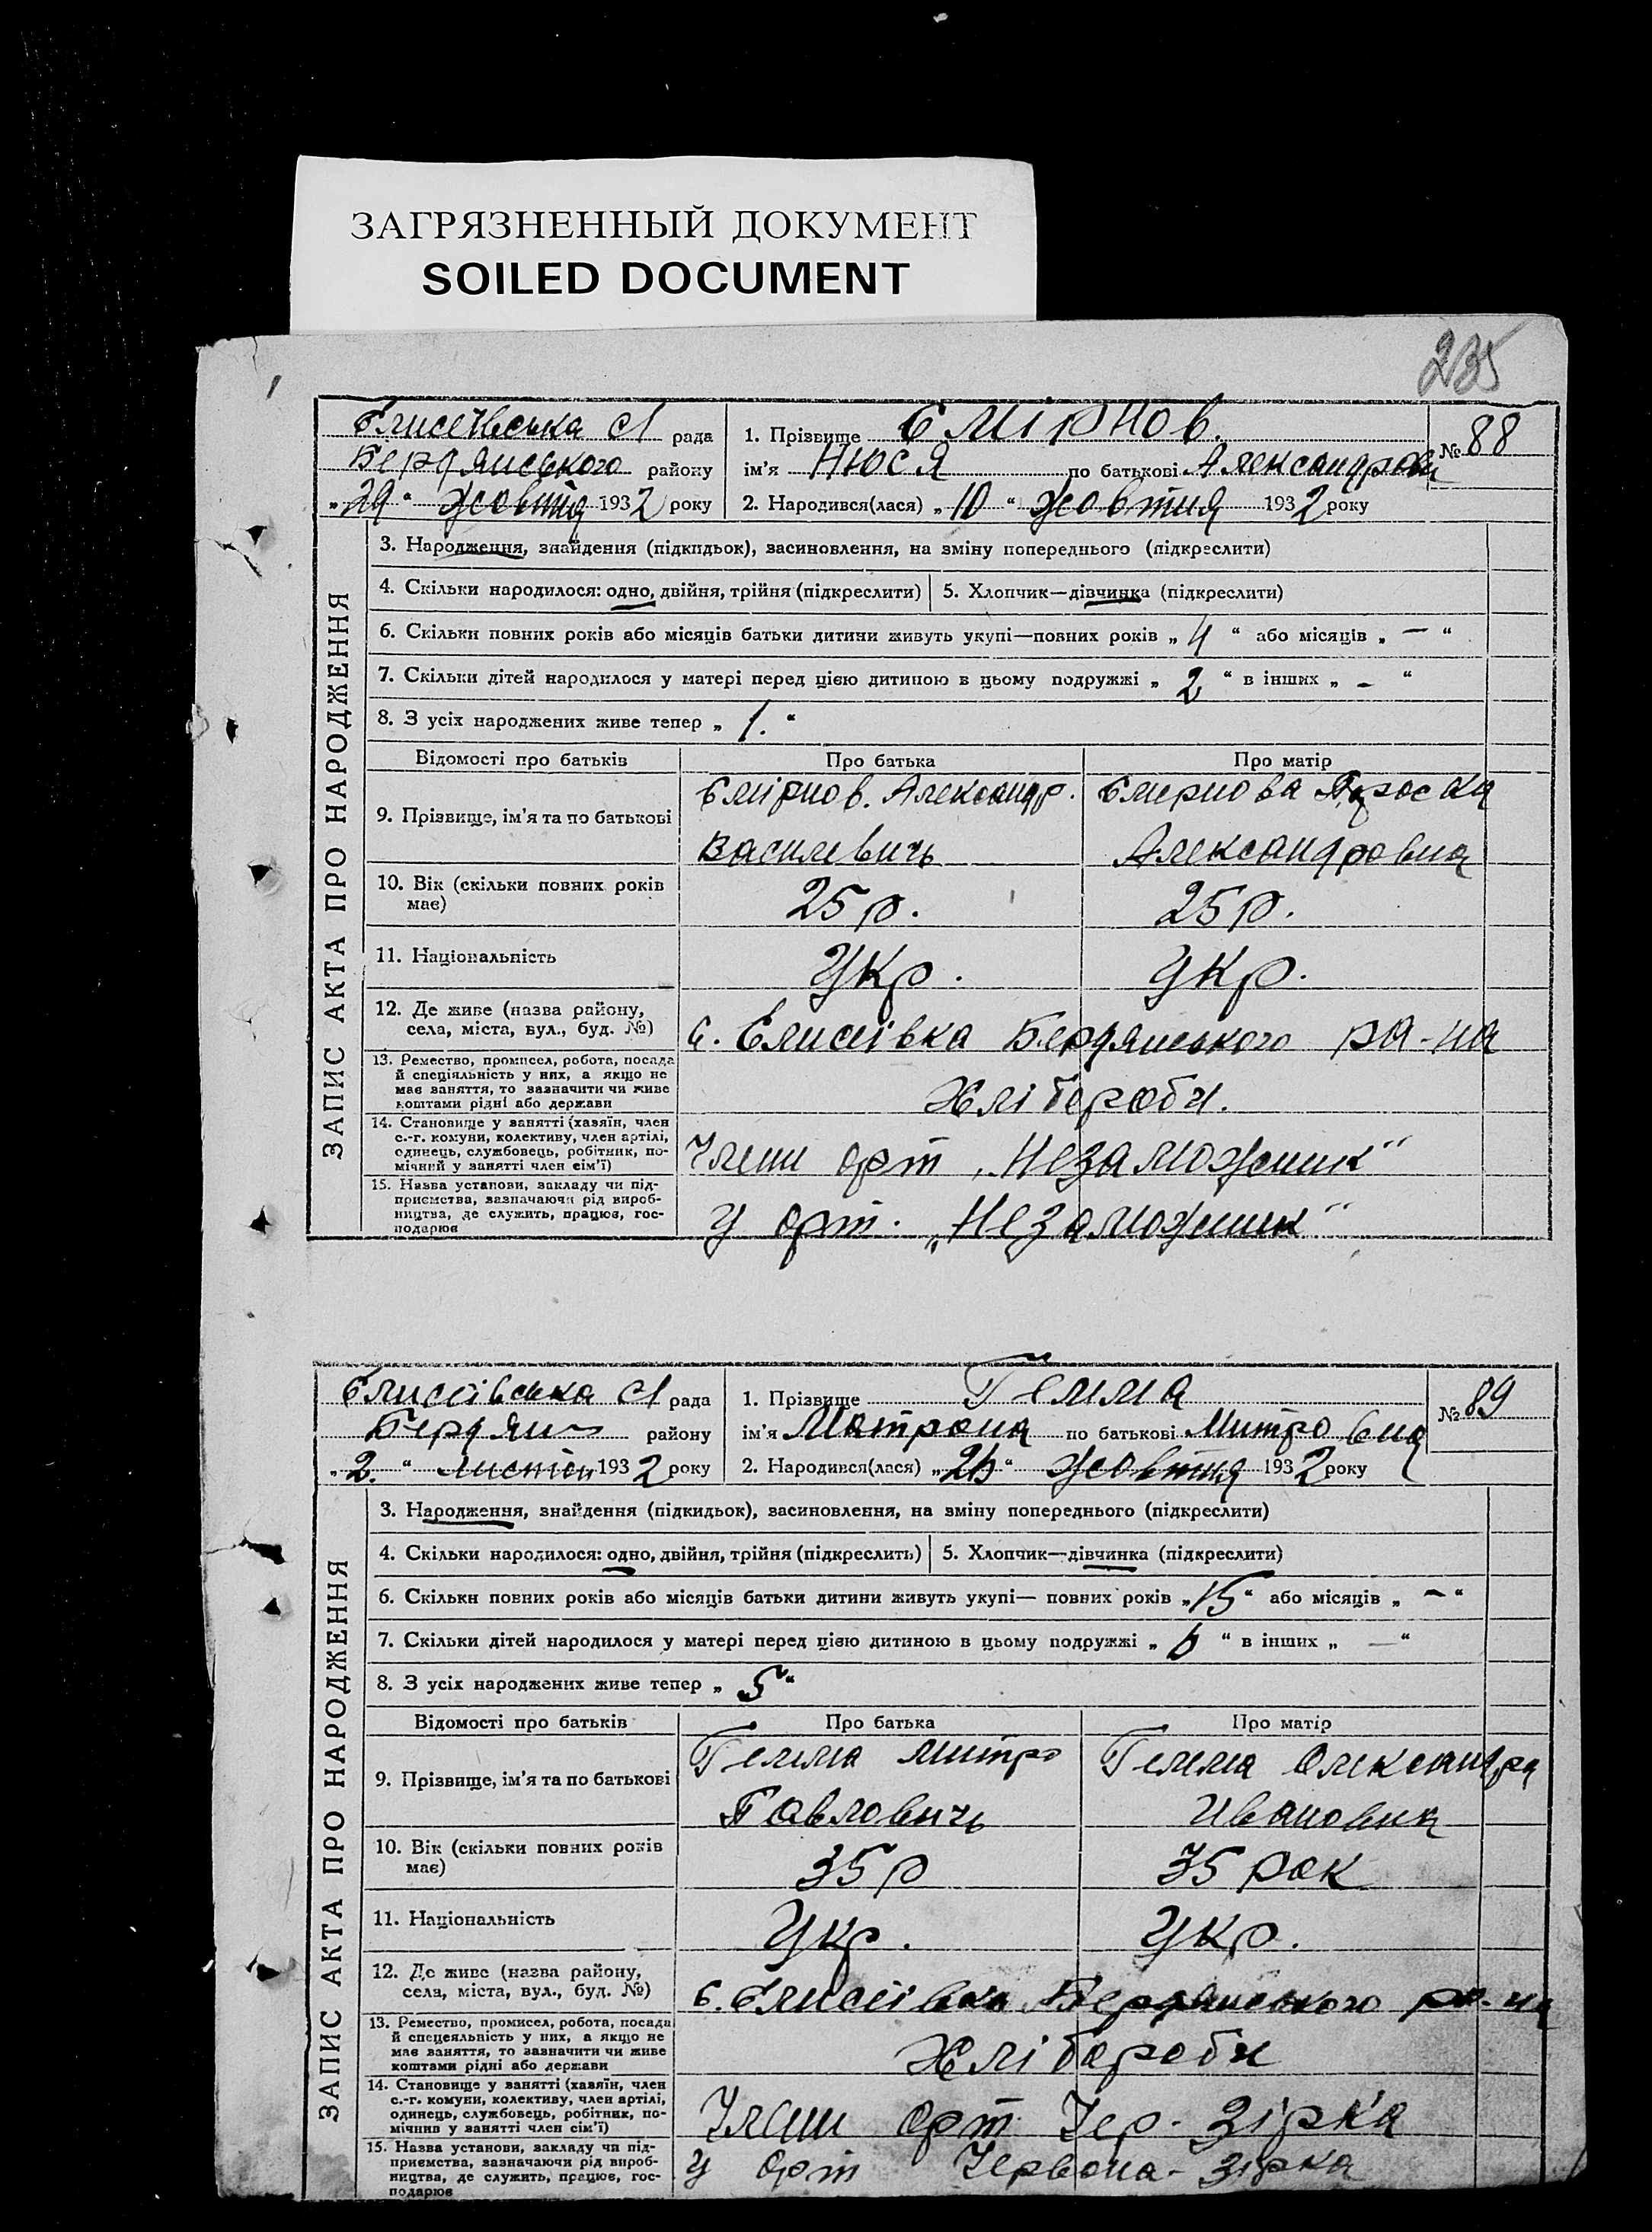 ЗАГРЯЗНЕННЫЙ ДОКУМЕНТ
SOILED DOCUMENT
235
ЗАПИС АКТА ПРО НАРОДЖЕННЯ
Єлисеївська с/ рада
Бердянського району
„29“ жовтня 1932 року
1. Прізвище Смірнов.
№ 88
ім'я Нюся по батькові Александровн
2. Народився(лася) „10“ жовтня 1932 року
3. Народження, знайдення (підкидьок), засиновлення, на зміну попереднього (підкреслити)
4. Скільки народилося: одно, двійня, трійня (підкреслити) 5. Хлопчик—дівчинка (підкреслити)
6. Скільки повних років або місяців батьки дитини живуть укупі—повних років „4“ або місяців „—“
7. Скільки дітей народилося у матері перед цією дитиною в цьому подружжі „2“ в інших „-“
8. З усіх народжених живе тепер „1.“
Відомості про батьків Про батька Про матір
9. Прізвище, ім'я та по батькові
Смірнов. Александр.
Василевичь
Смирнова
Александровна
10. Вік (скільки повних років має)
25 р. 25 р.
11. Національність
Укр. Укр.
12. Де живе (назва району, села, міста, вул., буд. №)
с. Єлисеївка Бердянського ра-на
13. Ремество, промисел, робота, посада
й спеціяльність у них, а якщо не
має заняття, то зазначити чи живе
коштами рідні або держави
Хлібороби.
14. Становище у занятті (хазяїн, член
с.-г. комуни, колективу, член артілі,
одинець, службовець, робітник, по-
мічний у занятті член сім'ї)
Члени арт „Незаможник“
15. Назва установи, закладу чи під-
приємства, зазначаючи рід вироб-
ництва, де служить, працює, гос-
подарює
У арт. „Незаможник“
ЗАПИС АКТА ПРО НАРОДЖЕННЯ
Єлисеївська с/ рада
Бердян району
„2.“ листоп 1932 року
1. Прізвище Гемма
№ 89
ім'я Матрона по батькові Митровна
2. Народився(лася) „26“ жовтня 1932 року
3. Народження, знайдення (підкидьок), засиновлення, на зміну попереднього (підкреслити)
4. Скільки народилося: одно, двійня, трійня (підкреслить) 5. Хлопчик—дівчинка (підкреслити)
6. Скільки повних років або місяців батьки дитини живуть укупі— повних років „15“ або місяців „—“
7. Скільки дітей народилося у матері перед цією дитиною в цьому подружжі „6“ в інших „—“
8. З усіх народжених живе тепер „5“
Відомості про батьків Про батька Про матір
9. Прізвище, ім'я та по батькові
Гемма митро
Павловичь
Гемма Олександра
Ивановна
10. Вік (скільки повних років має)
35 р 35 рок
11. Національність
Укр. Укр.
12. Де живе (назва району, села, міста, вул., буд. №)
с. Єлисеївка Бердянського ра-на
13. Ремество, промисел, робота, посада
й спецеяльність у них, а якщо не
має заняття, то зазначити чи живе
коштами рідні або держави
Хлібороби
14. Становище у занятті (хазяїн, член
с.-г. комуни, колективу, член артілі,
одинець, службовець, робітник, по-
мічник у занятті член сім'ї)
Члени арт Чер. Зірка
15. Назва установи, закладу чи під-
приємства, зазначаючи рід вироб-
ництва, де служить, працює, гос-
подарює
У арт Червона-Зірка